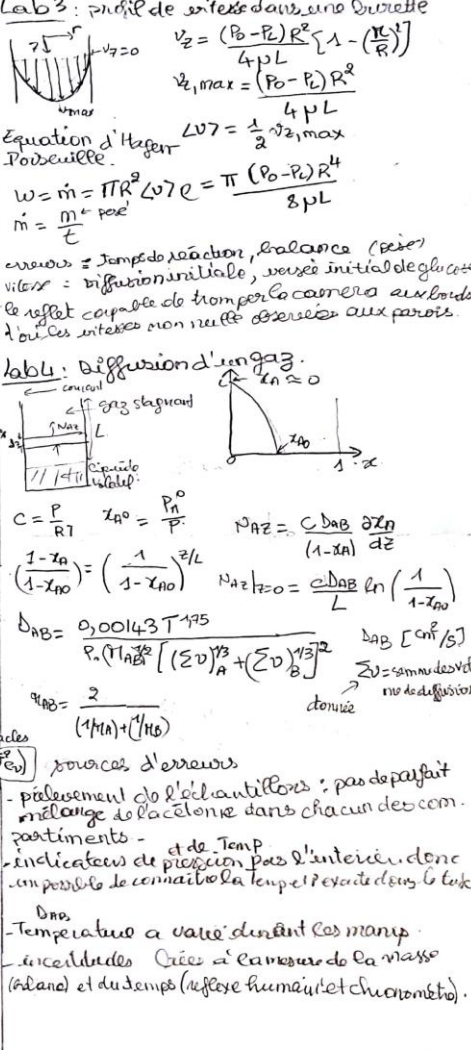 Lab 3 : profil de vitesse dans une burette
r
v_z=0
v_max
v_z = (P0-PL)R²/4µL [1 - (r/R)²]
v_z,max = (P0-PL)R²/4µL
<v> = 1/2 v_z,max
Equation d'Hagen
Poiseuille.
w = ṁ = πR²<v>ρ = π (P0-PL)R⁴/8µL
ṁ = m/t ← pesé
erreurs = temps de réaction, balance (pesée)
vitesse = Diffusion initiale, versée initial de
le reflet capable de tromper la caméra aux bords
d'où les vitesses non nulle observées aux parois.
Lab 4 : Diffusion d'un gaz.
← courant
gaz stagnant
NAZ
L
Liquide
volatil
L ← xA ≈ 0
xA0
0 1 x
C = P/RT xA0 = PA⁰/P NAZ = CDAB/(1-xA) ∂xA/dz
(1-xA/1-xA0) = (1/1-xA0)^z/L NAZ|z=0 = CDAB/L ln (1/1-xA0)
DAB = 0,00143T^1,75/P.(MAB)^1/2 [(Συ)A^1/3 + (Συ)B^1/3]² DAB [cm²/s]
Συ = somme des vol
de diffusion
donnée
MAB = 2/(1/MA)+(1/MB)
sources d'erreurs
- prélèvement de l'échantillons : pas de parfait
mélange de l'acétone dans chacun des com-
partiments -
et de Temp
- indicateur de pression pas l'intérieur donc
impossible de connaître la temp et P exacte dans le
DAB
- Température a varié durant les manip.
- incertitudes Créés à la mesure de la masse
et du temps (réflexe humain et chronomètre).